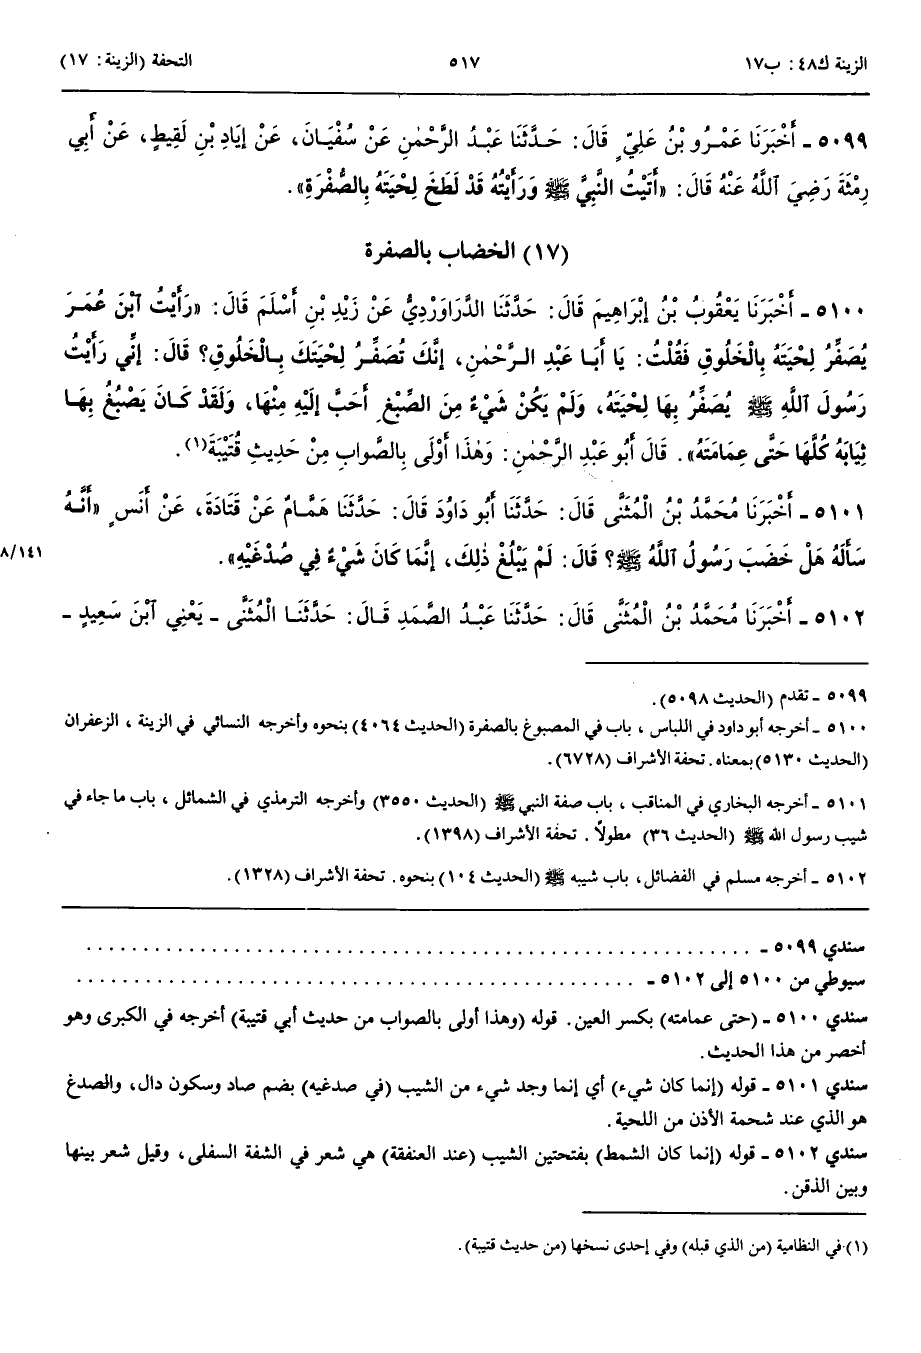 الزينة ك٤٨: ب١٧ ٥١٧ التحفة (الزينة: ١٧)
٥٠٩٩ ـ أَخْبَرَنَا عَمْرُو بْنُ عَلِيٍّ قَالَ: حَدَّثَنَا عَبْدُ الرَّحْمٰنِ عَنْ سُفْيَانَ، عَنْ إِيَادِ بْنِ لَقِيطٍ، عَنْ أَبِي
رِمْثَةَ رَضِيَ ٱللَّهُ عَنْهُ قَالَ: «أَتَيْتُ النَّبِيَّ ﷺ وَرَأَيْتُهُ قَدْ لَطَخَ لِحْيَتَهُ بِالصُّفْرَةِ».
(١٧) الخضاب بالصفرة
٥١٠٠ ـ أَخْبَرَنَا يَعْقُوبُ بْنُ إِبْرَاهِيمَ قَالَ: حَدَّثَنَا الدَّرَاوَرْدِيُّ عَنْ زَيْدِ بْنِ أَسْلَمَ قَالَ: «رَأَيْتُ ٱبْنَ عُمَرَ
يُصَفِّرُ لِحْيَتَهُ بِالْخَلُوقِ فَقُلْتُ: يَا أَبَا عَبْدِ الرَّحْمٰنِ، إِنَّكَ تُصَفِّرُ لِحْيَتَكَ بِالْخَلُوقِ؟ قَالَ: إِنِّي رَأَيْتُ
رَسُولَ ٱللَّهِ ﷺ يُصَفِّرُ بِهَا لِحْيَتَهُ، وَلَمْ يَكُنْ شَيْءٌ مِنَ الصِّبْغِ أَحَبَّ إِلَيْهِ مِنْهَا، وَلَقَدْ كَانَ يَصْبُغُ بِهَا
ثِيَابَهُ كُلَّهَا حَتَّى عِمَامَتَهُ». قَالَ أَبُو عَبْدِ الرَّحْمٰنِ: وَهٰذَا أَوْلَى بِالصَّوَابِ مِنْ حَدِيثِ قُتَيْبَةَ(١).
٥١٠١ ـ أَخْبَرَنَا مُحَمَّدُ بْنُ الْمُثَنَّى قَالَ: حَدَّثَنَا أَبُو دَاوُدَ قَالَ: حَدَّثَنَا هَمَّامٌ عَنْ قَتَادَةَ، عَنْ أَنَسٍ «أَنَّهُ
سَأَلَهُ هَلْ خَضَبَ رَسُولُ ٱللَّهُ ﷺ؟ قَالَ: لَمْ يَبْلُغْ ذٰلِكَ، إِنَّمَا كَانَ شَيْءٌ فِي صُدْغَيْهِ». ٨/١٤١
٥١٠٢ ـ أَخْبَرَنَا مُحَمَّدُ بْنُ الْمُثَنَّى قَالَ: حَدَّثَنَا عَبْدُ الصَّمَدِ قَالَ: حَدَّثَنَا الْمُثَنَّى ـ يَعْنِي ٱبْنَ سَعِيدٍ ـ
٥٠٩٩ ـ تقدم (الحديث ٥٠٩٨).
٥١٠٠ ـ أخرجه أبو داود في اللباس، باب في المصبوغ بالصفرة (الحديث ٤٠٦٤) بنحوه وأخرجه النسائي في الزينة، الزعفران
(الحديث ٥١٣٠) بمعناه. تحفة الأشراف (٦٧٢٨).
٥١٠١ ـ أخرجه البخاري في المناقب، باب صفة النبي ﷺ (الحديث ٣٥٥٠) وأخرجه الترمذي في الشمائل، باب ما جاء في
شيب رسول الله ﷺ (الحديث ٣٦) مطولاً. تحفة الأشراف (١٣٩٨).
٥١٠٢ ـ أخرجه مسلم في الفضائل، باب شيبه ﷺ (الحديث ١٠٤) بنحوه. تحفة الأشراف (١٣٢٨).
سندي ٥٠٩٩ ـ . . . . . . . . . . . . . . . . . . . . . . . . . . . . . .
سيوطي من ٥١٠٠ إلى ٥١٠٢ ـ . . . . . . . . . . . . . . . . . . . . . . . . .
سندي ٥١٠٠ ـ (حتى عمامته) بكسر العين. قوله (وهذا أولى بالصواب من حديث أبي قتيبة) أخرجه في الكبرى وهو
أخصر من هذا الحديث.
سندي ٥١٠١ ـ قوله (إنما كان شيء) أي إنما وجد شيء من الشيب (في صدغيه) بضم صاد وسكون دال، والصدغ
هو الذي عند شحمة الأذن من اللحية.
سندي ٥١٠٢ ـ قوله (إنما كان الشمط) بفتحتين الشيب (عند العنفقة) هي شعر في الشفة السفلى، وقيل شعر بينها
وبين الذقن.
(١) في النظامية (من الذي قبله) وفي إحدى نسخها (من حديث قتيبة).